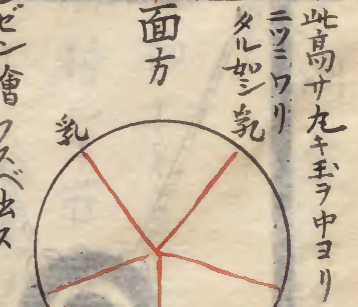 此高サ丸キ玉ヲ中ヨリ
ニツニワリ
タル如シ乳
面方
乳
ゼン會フスベ出ス